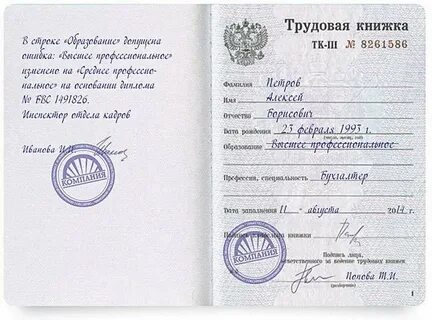 В строке «Образование» допущена
ошибка: «Высшее профессиональное»
изменено на «Среднее профессио-
нальное» на основании диплома
№ FBC 1491826.
Инспектор отдела кадров
Иванова И.И.
КОМПАНИЯ
Трудовая книжка
ТК-III № 8261586
Фамилия Петров
Имя Алексей
Отчество Борисович
Дата рождения 23 февраля 1993 г.
(число, месяц, год)
Образование Высшее профессиональное
Профессия, специальность Бухгалтер
Дата заполнения 11 августа 2014 г.
Подпись владельца книжки
Подпись лица,
ответственного за ведение трудовых книжек
Попова Т.И.
(разборчиво)
КОМПАНИЯ
1